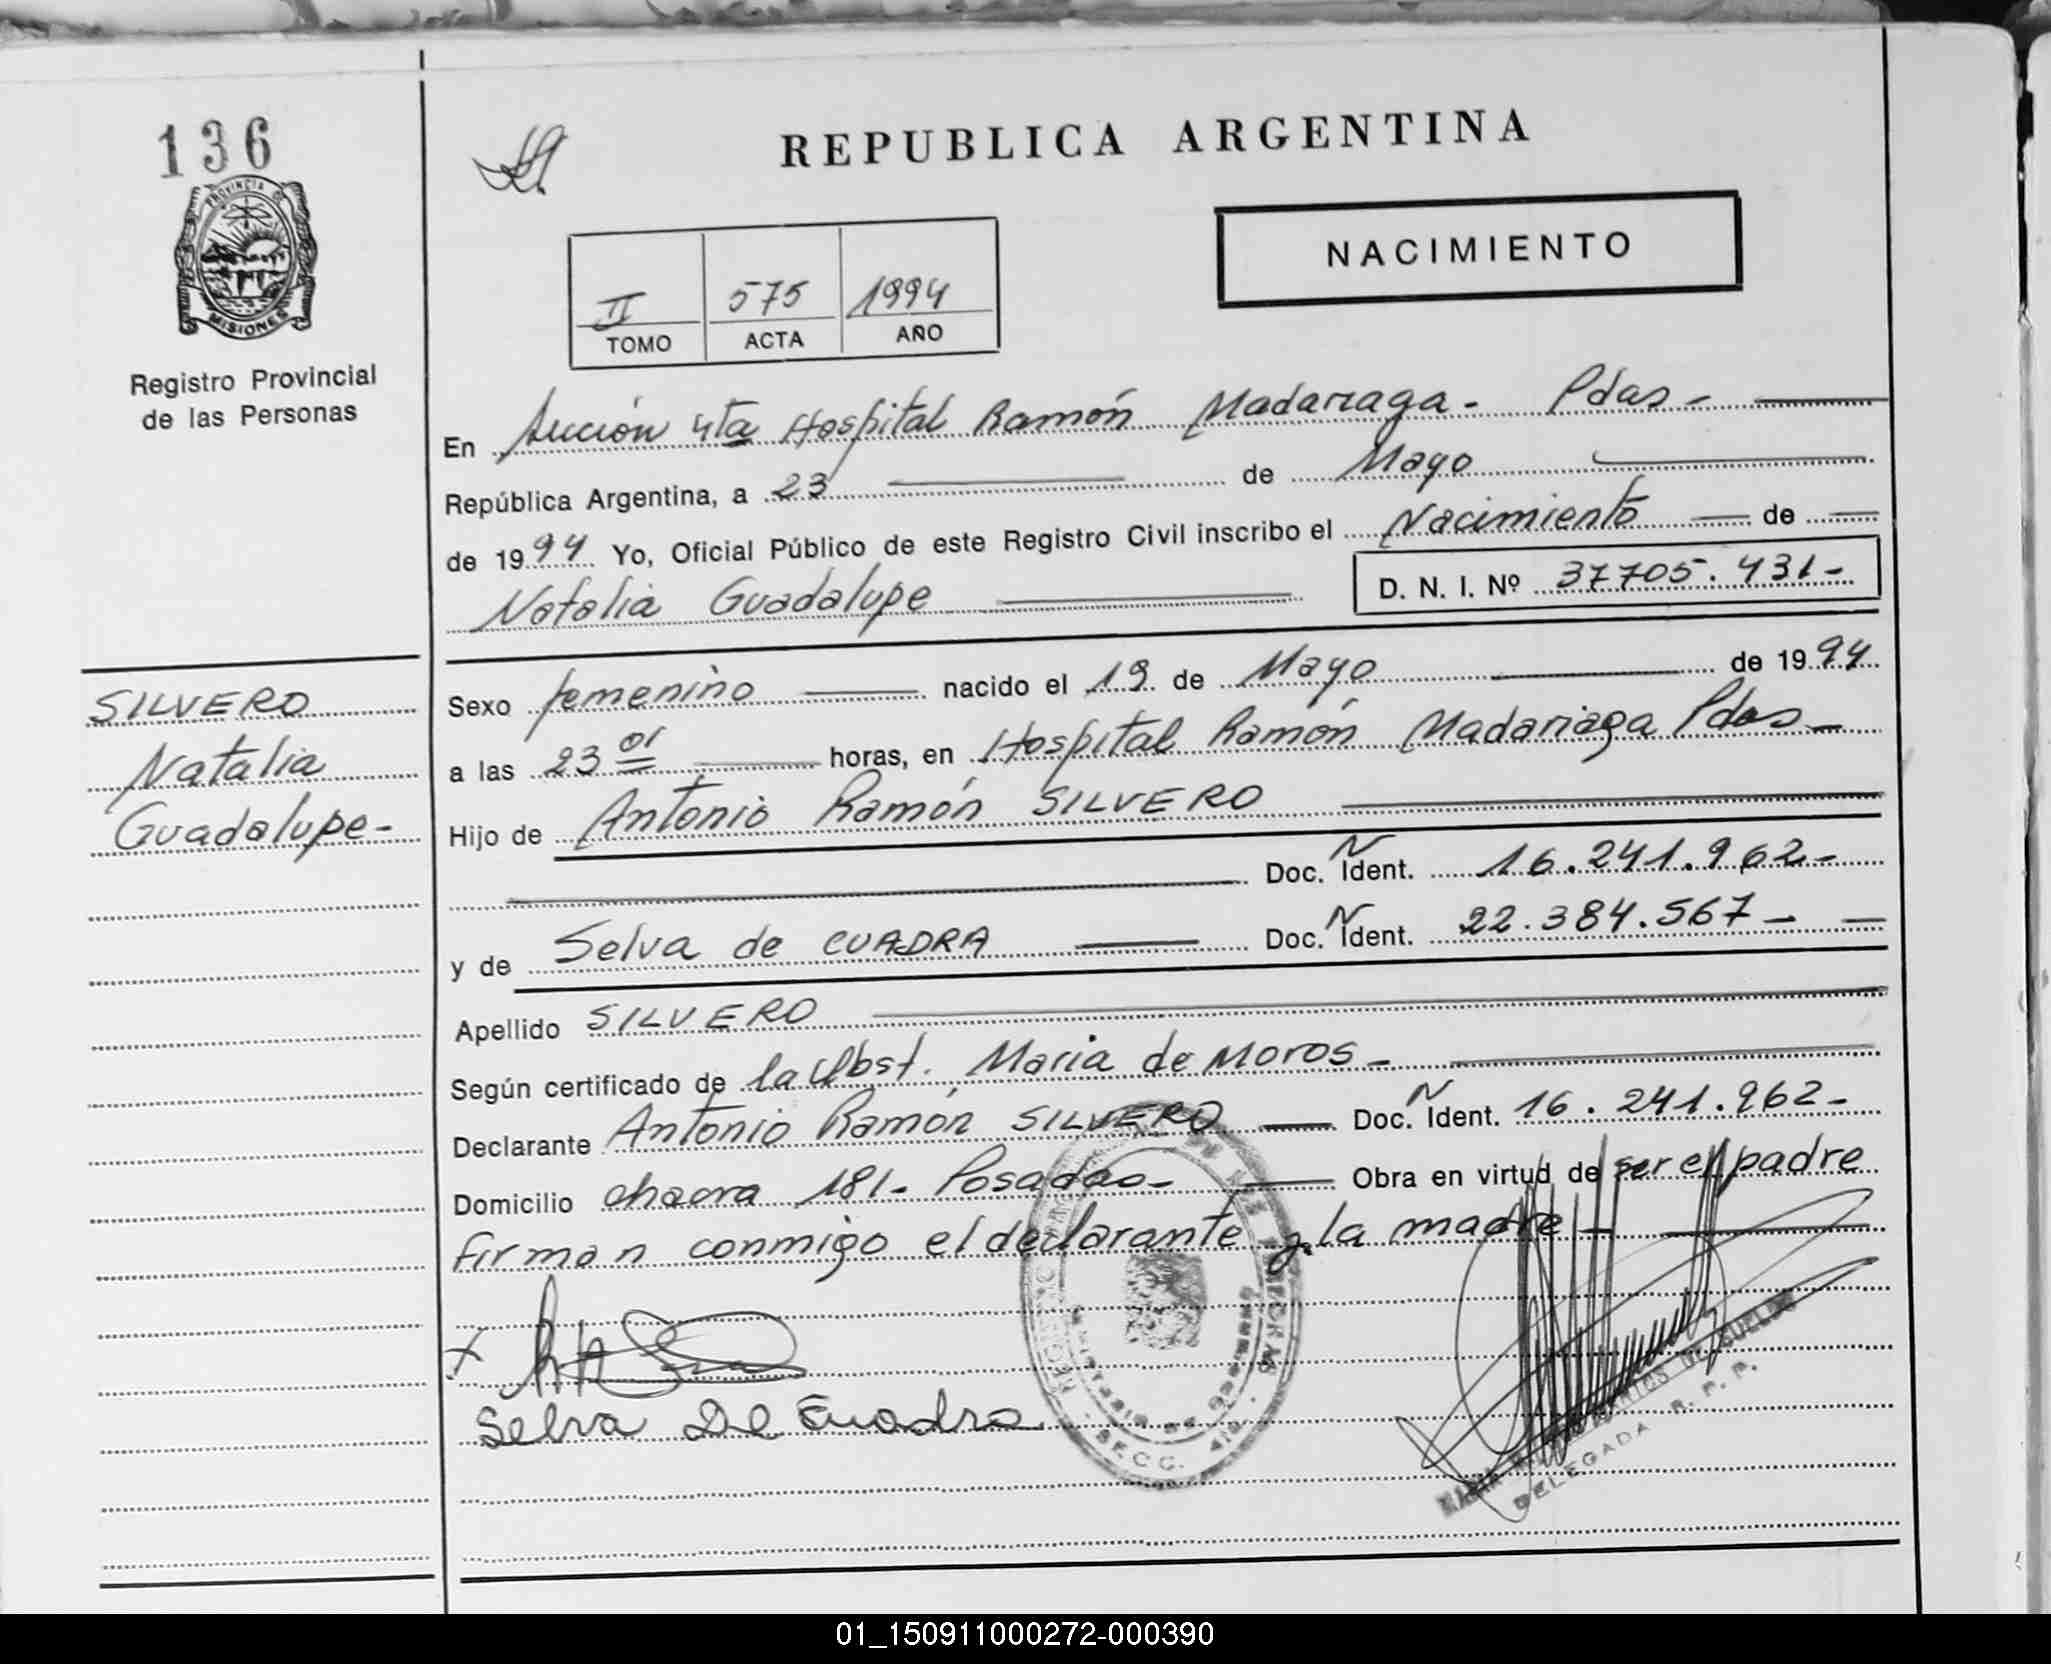 136
PROVINCIA DE
MISIONES
Registro Provincial
de las Personas
REPUBLICA ARGENTINA
NACIMIENTO
II 575 1994
TOMO ACTA AÑO
En Sección 4ta Hospital Ramón Madariaga - Pdas -
República Argentina, a 23 de Mayo
de 1994 Yo, Oficial Público de este Registro Civil inscribo el Nacimiento de
Natalia Guadalupe D. N. I. Nº 37705.431-
SILVERO
Natalia
Guadalupe-
Sexo femenino nacido el 19 de Mayo de 1994
a las 23 01 horas, en Hospital Ramón Madariaga Pdas -
Hijo de Antonio Ramón SILVERO
Doc. N Ident. 16.241.962-
y de Selva de CUADRA Doc. N Ident. 22.384.567-
Apellido SILVERO
Según certificado de la Obst. Maria de Moros -
Declarante Antonio Ramón SILVERO Doc. N Ident. 16.241.962-
Domicilio chacra 181- Posadas- Obra en virtud de ser el padre
Firman conmigo el declarante y la madre -
Selva De Cuadra
SECC. 4ta.
DELEGADA R. P. P.
01_150911000272-000390